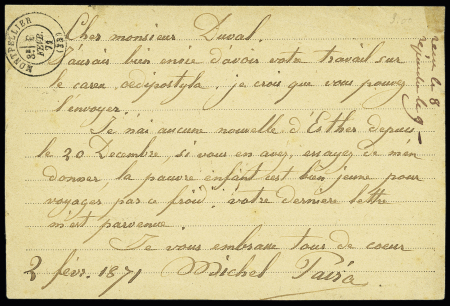 MONTPELLIER
3E
FEVR.
71
(33)
Cher monsieur Duval.
J'aurais bien envie d'avoir votre travail sur
le carex œdipostyla, je crois que vous pouvez
l'envoyer.
Je n'ai aucune nouvelle d'Esther depuis
le 20 Decembre, si vous en avez, essayez de m'en
donner, la pauvre enfant est bien jeune pour
voyager par ce froid. votre derniere lettre
m'est parvenue.
Je vous embrasse tous de coeur
2 févr. 1871 Michel
reçue le 8
répondu le 9